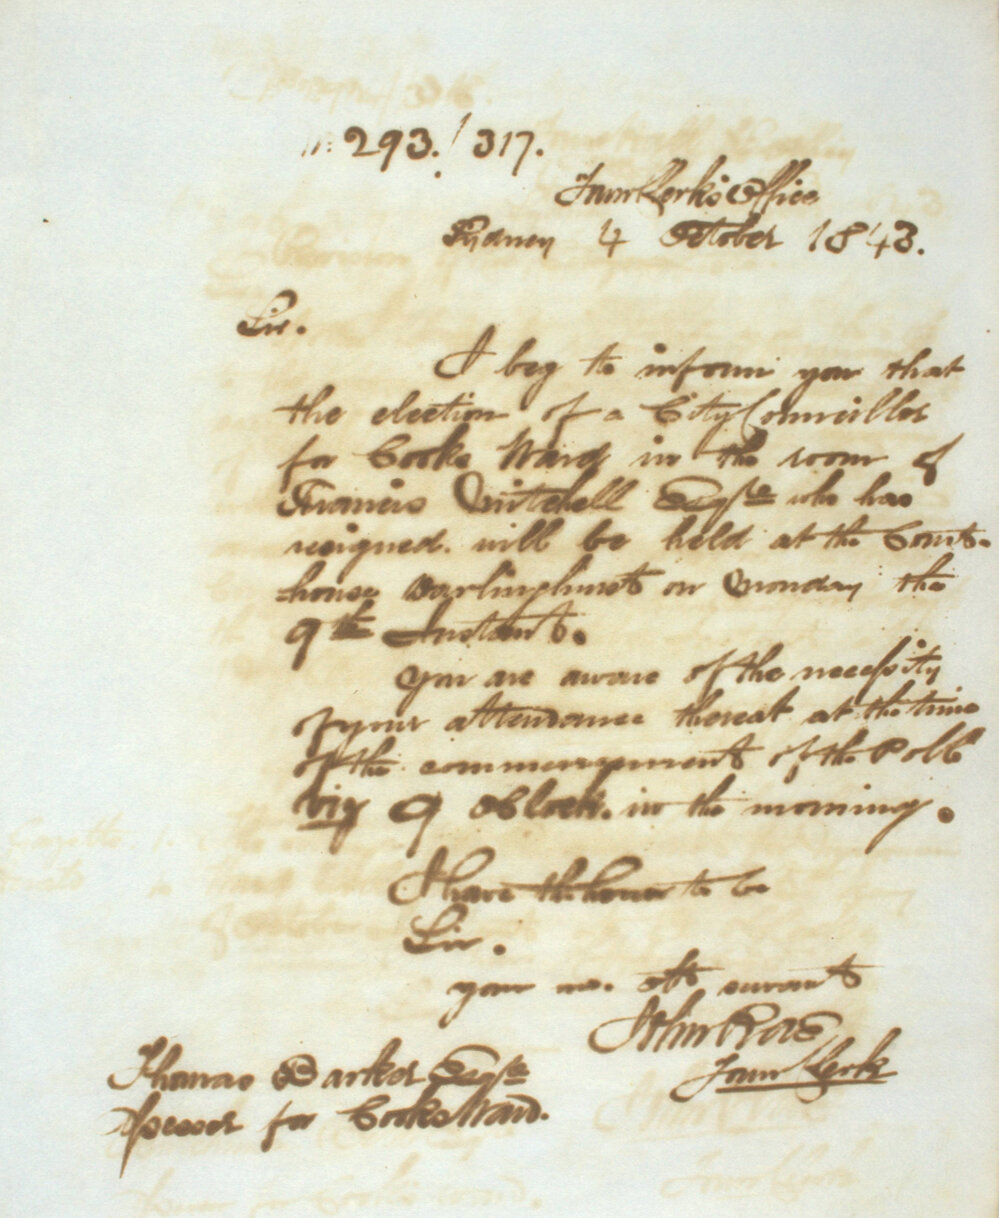 No. 293. / 317.
Town Clerk's Office
Sydney 4 October 1843.
Sir.
I beg to inform you that
the election of a City Councillor
for Cooks Ward in the room of
Francis Mitchell Esqre who has
resigned. will be held at the Court-
house Darlinghurst on Monday the
9th Instant.
You are aware of the necessity
of your attendance thereat at the time
of the commencement of the Poll
viz 9 oClock. in the morning.
I have the honor to be
Sir.
your mo. obt servant
John Rae
Town Clerk
Thomas Barker Esqre
Assessor for Cooks Ward.